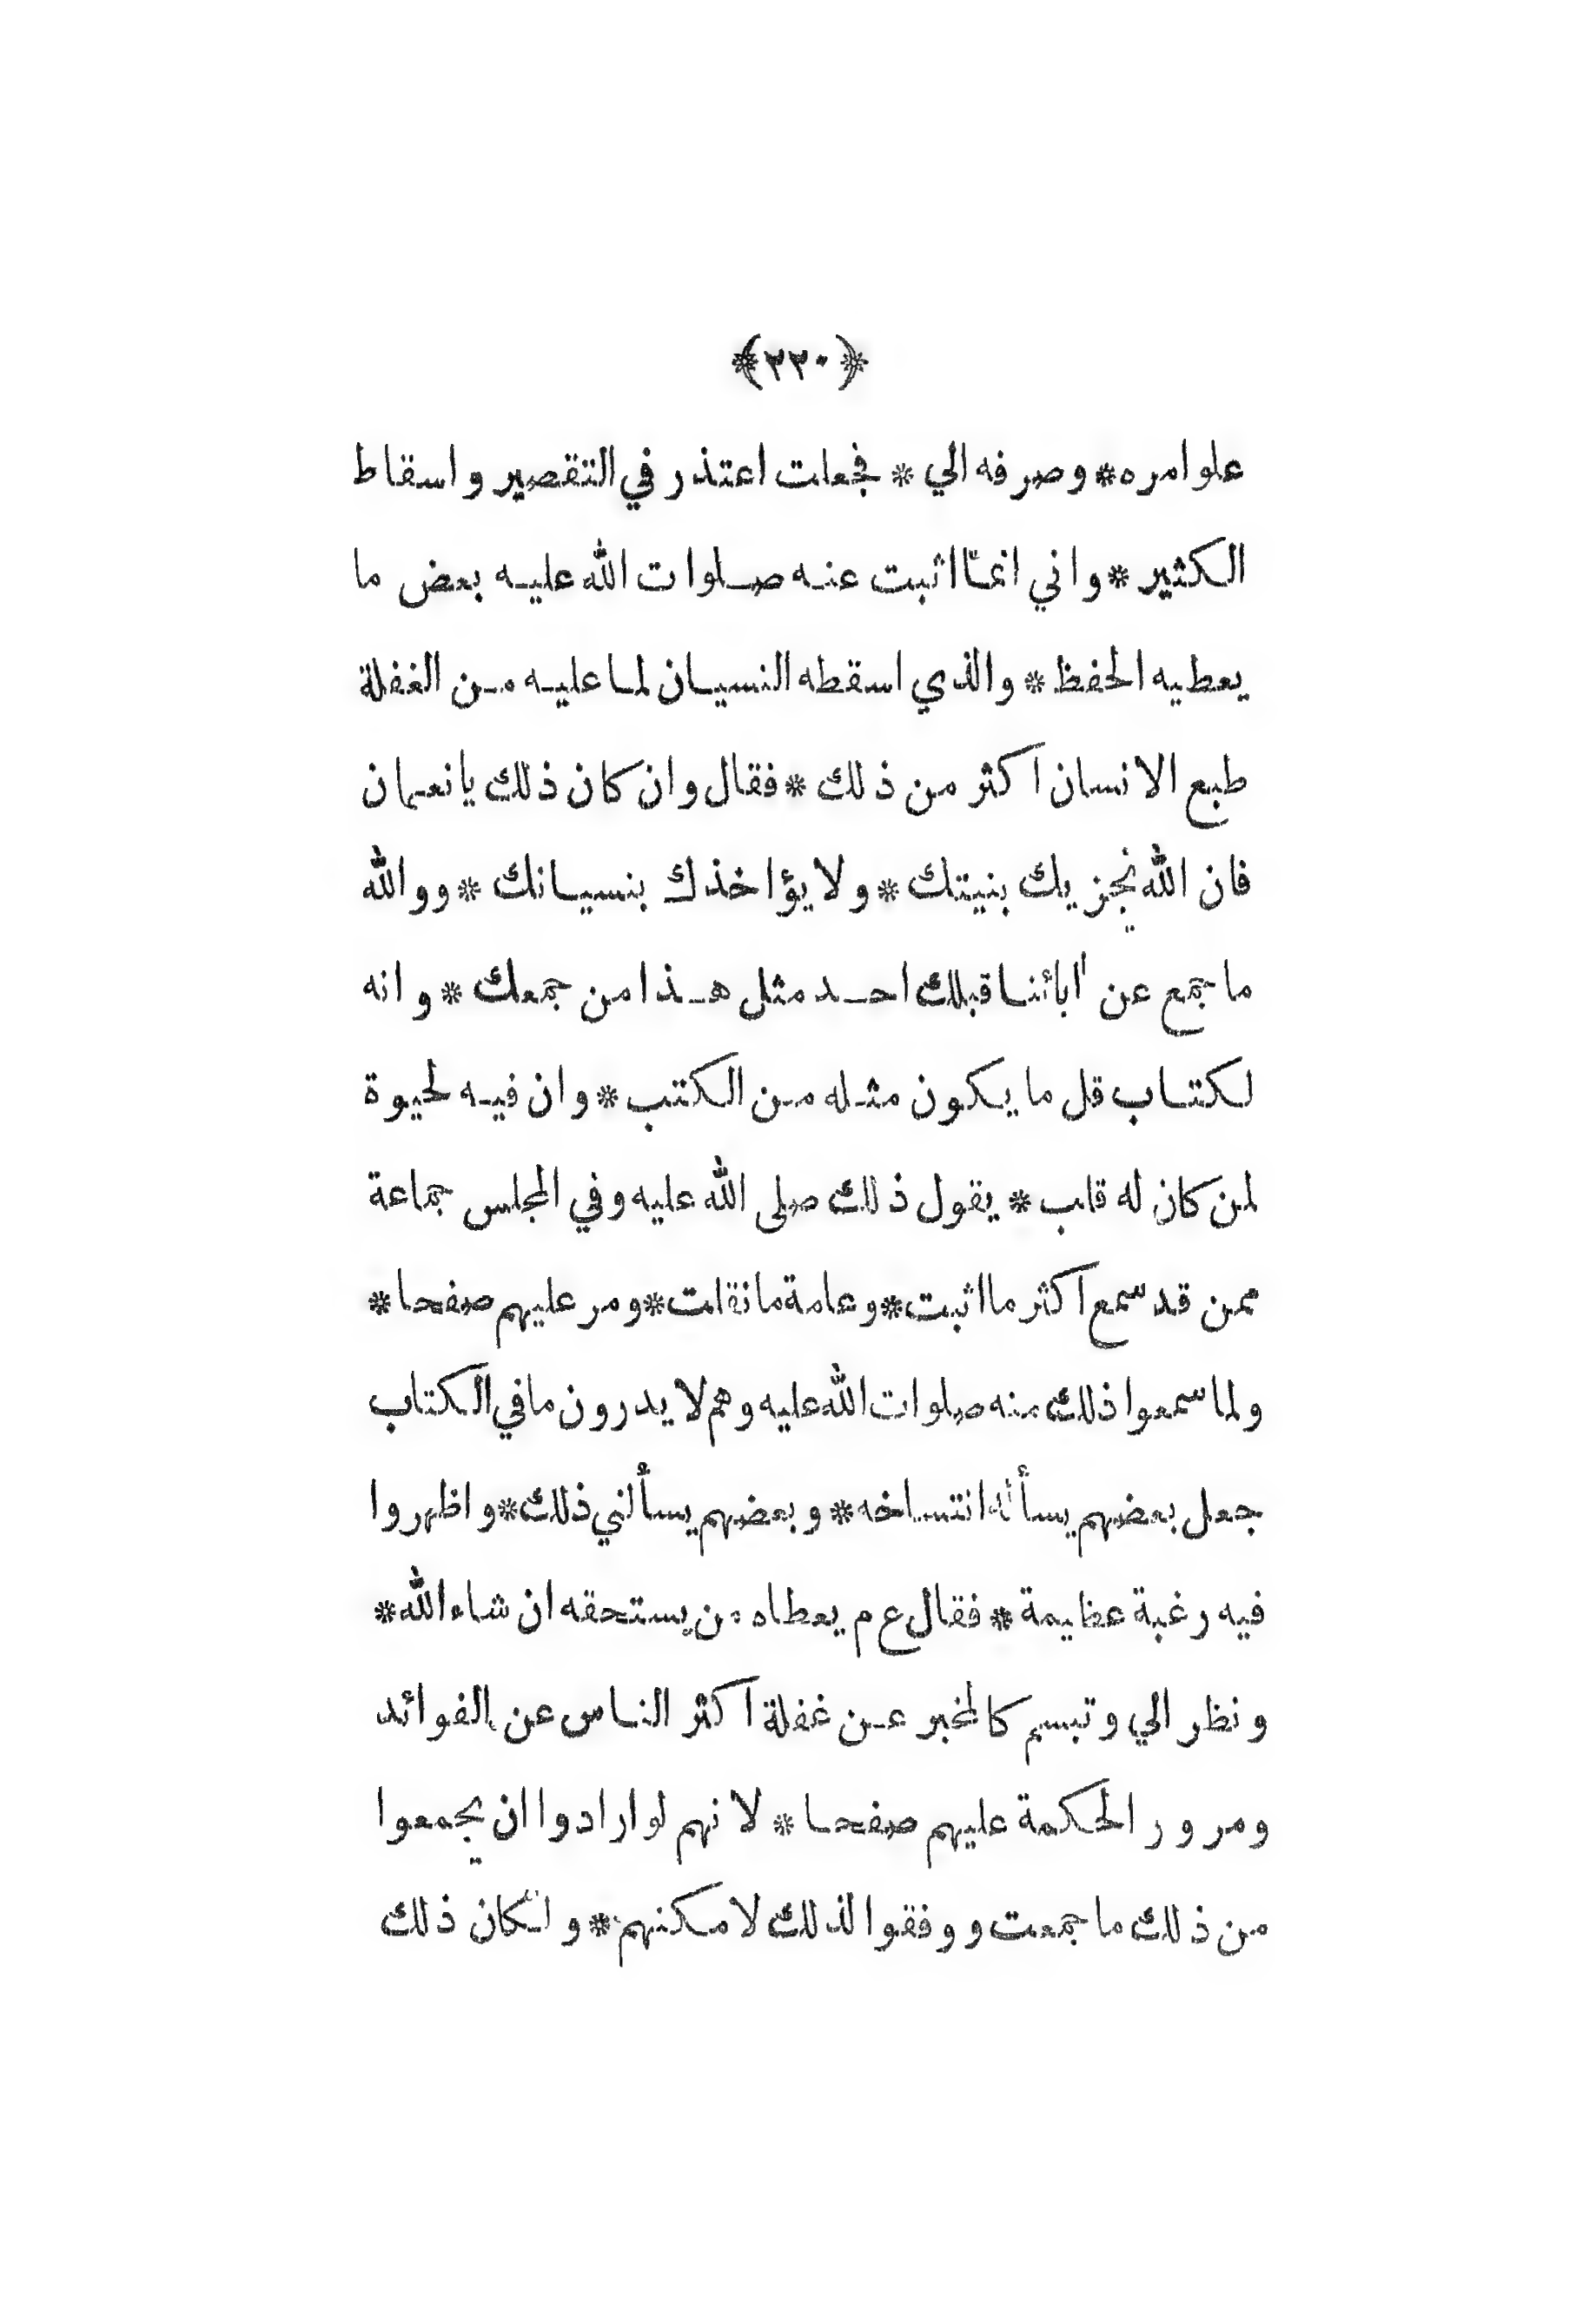 ﴿٢٢٠﴾
علو امره * وصرفه الي * فجعلت اعتذر في التقصير واسقاط
الكثير * واني انما اثبت عنه صلوات الله عليه بعض ما
يعطيه الحفظ * والذي اسقطه النسيان لما عليه من الغفلة
طبع الانسان اكثر من ذلك * فقال وان كان ذلك يا نعمان
فان الله يجزيك بنيتك * ولا يؤاخذك بنسيانك * ووالله
ما جمع عن اٰبائنا قبلك احد مثل هذا من جمعك * وانه
لكتاب قل ما يكون مثله من الكتب * وان فيه لحيوة
لمن كان له قلب * يقول ذلك صلى الله عليه وفي المجلس جماعة
ممن قد سمع اكثر ما اثبت * وعامة ما نقلت * ومر عليهم صفحا *
ولما سمعوا ذلك منه صلوات الله عليه وهم لا يدرون ما في الكتاب
جعل بعضهم يسأله انتساخه * وبعضهم يسألني ذلك * واظهروا
فيه رغبة عظيمة * فقال ع م يعطاه من يستحقه ان شاء الله *
ونظر الي وتبسم كالمخبر عن غفلة اكثر الناس عن الفوائد
ومرور الحكمة عليهم صفحا * لانهم لو ارادوا ان يجمعوا
من ذلك ما جمعت ووفقوا لذلك لامكنهم * ولكان ذلك